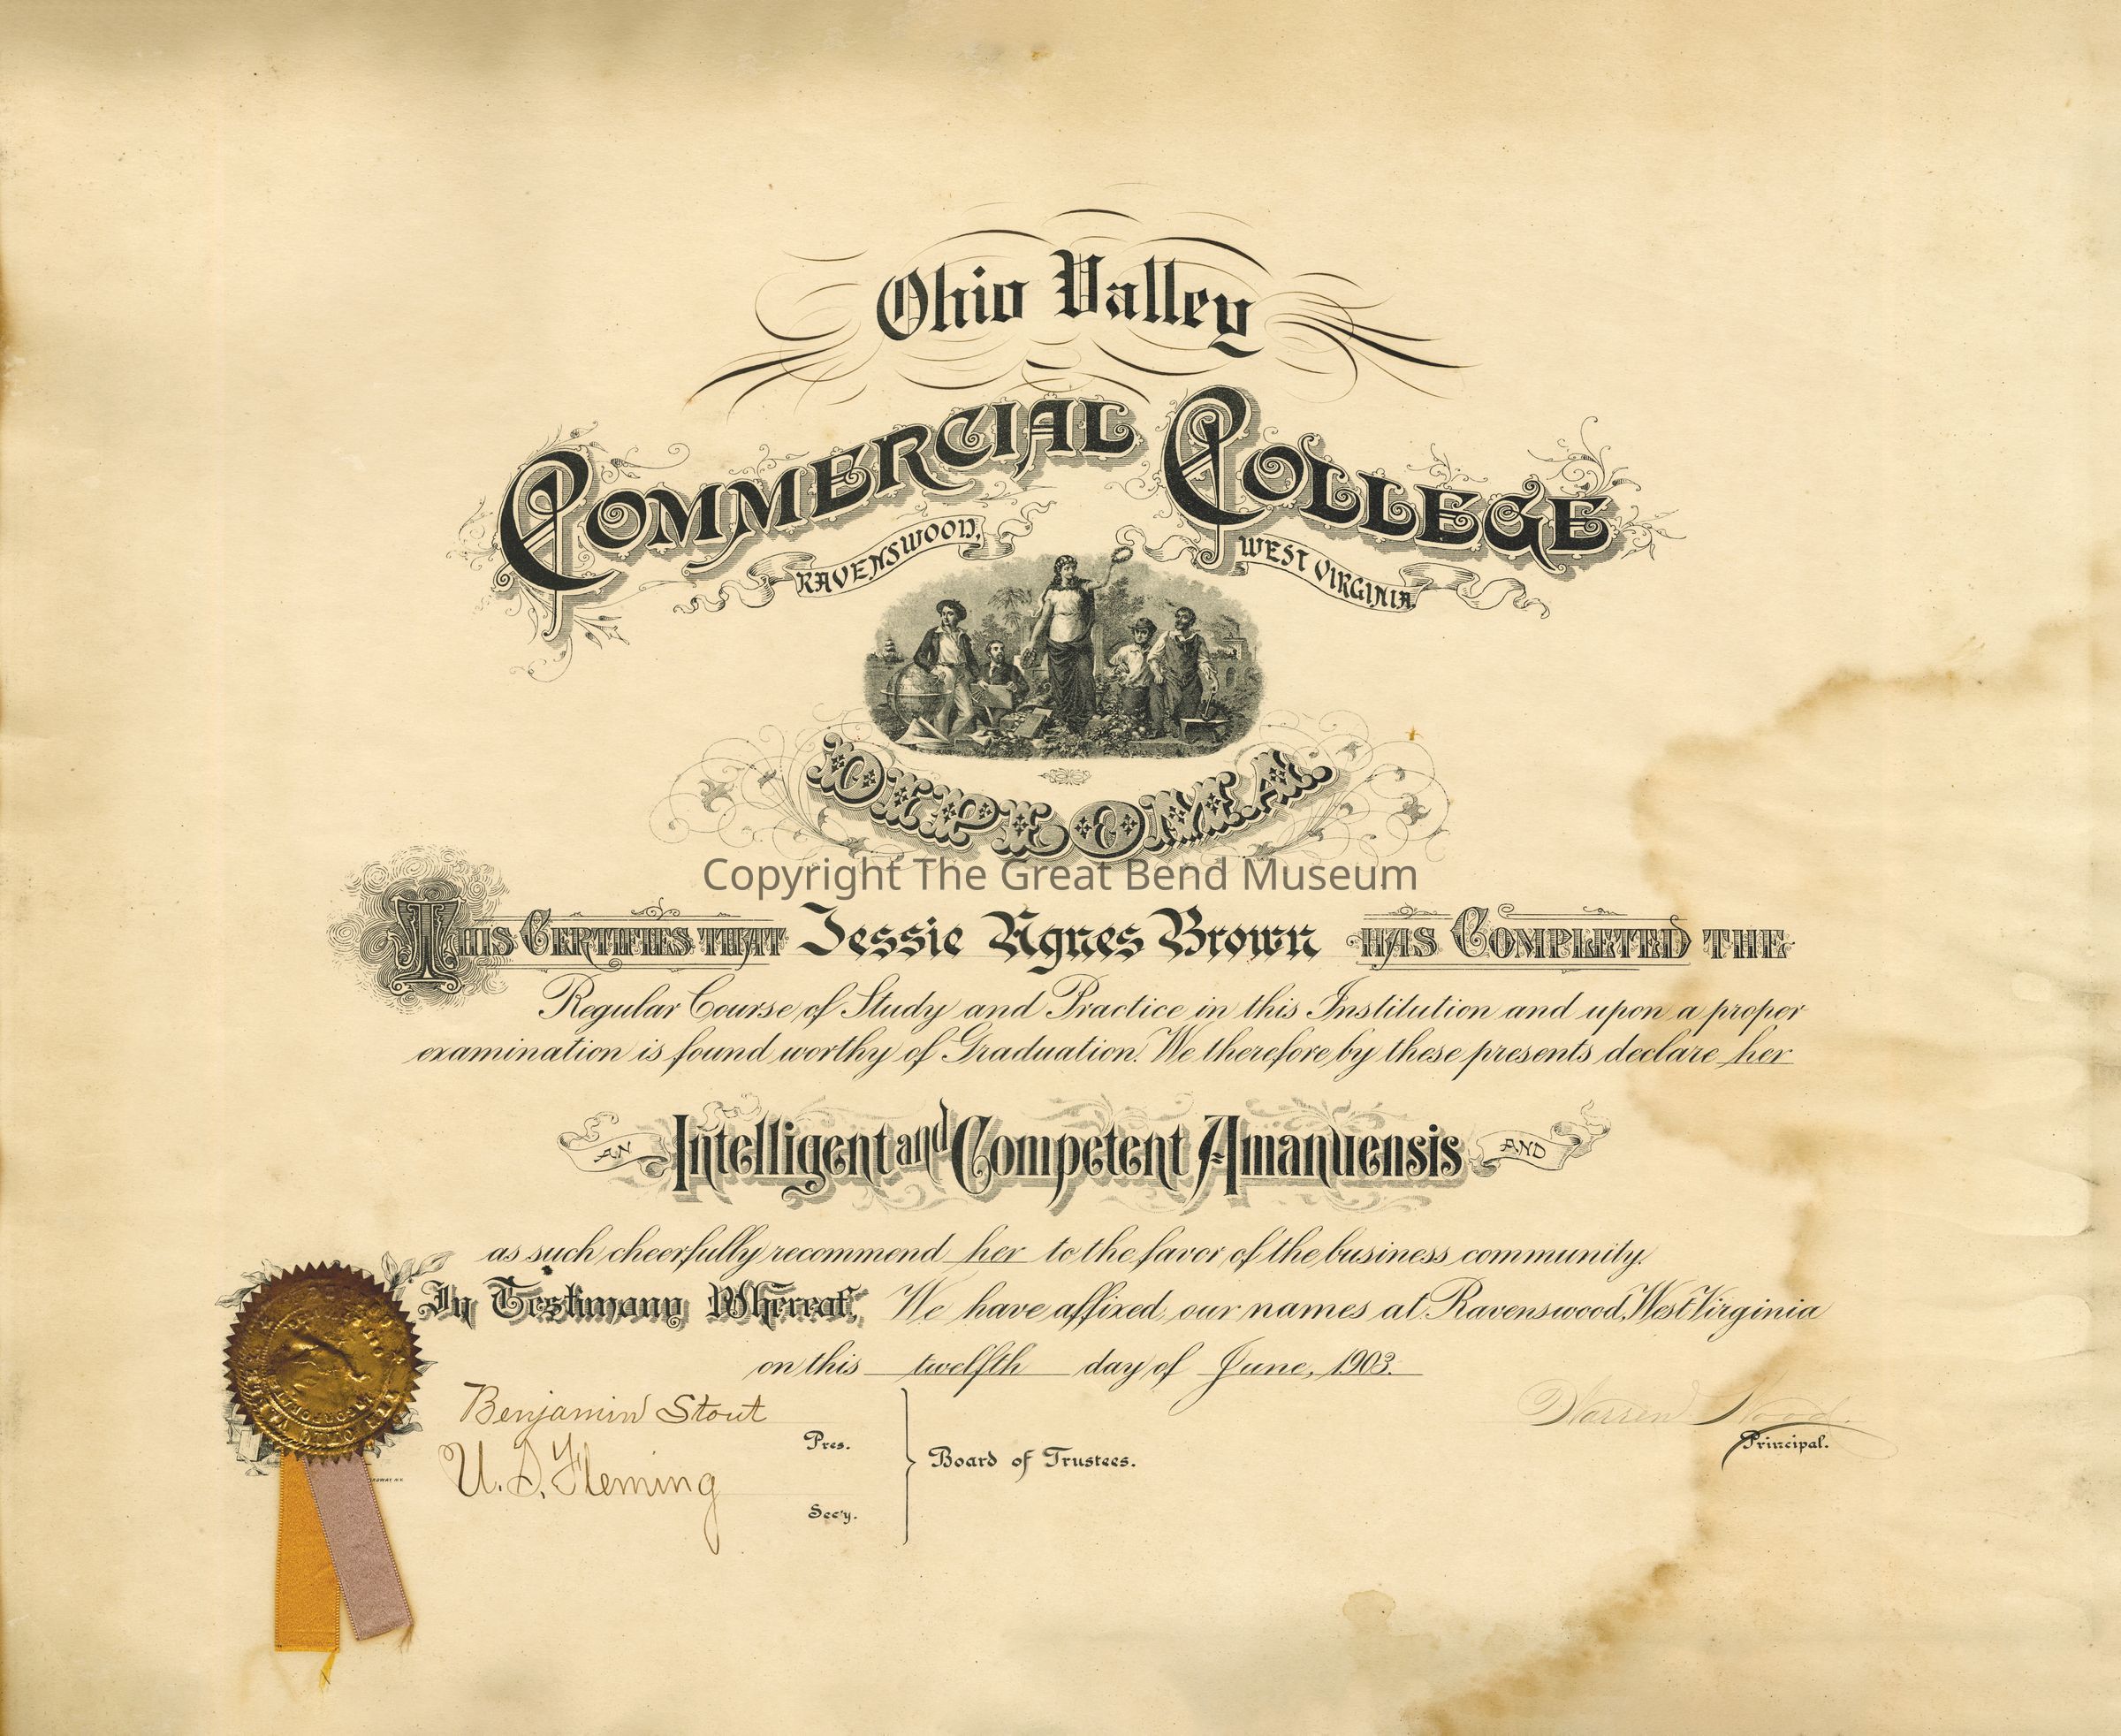 Ohio Valley
COMMERCIAL COLLEGE
RAVENSWOOD, WEST VIRGINIA.
DIPLOMA.
Copyright The Great Bend Museum
THIS CERTIFIES THAT Jessie Agnes Brown HAS COMPLETED THE
Regular Course of Study and Practice in this Institution and upon a proper
examination is found worthy of Graduation. We therefore by these presents declare her
AN Intelligent and Competent Amanuensis AND
as such cheerfully recommend her to the favor of the business community.
In Testimony Whereof, We have affixed our names at Ravenswood, West Virginia
on this twelfth day of June, 1903.
Benjamin Stout
Pres.
U. S. Fleming
Sec'y.
Board of Trustees.
Warren Wood.
Principal.